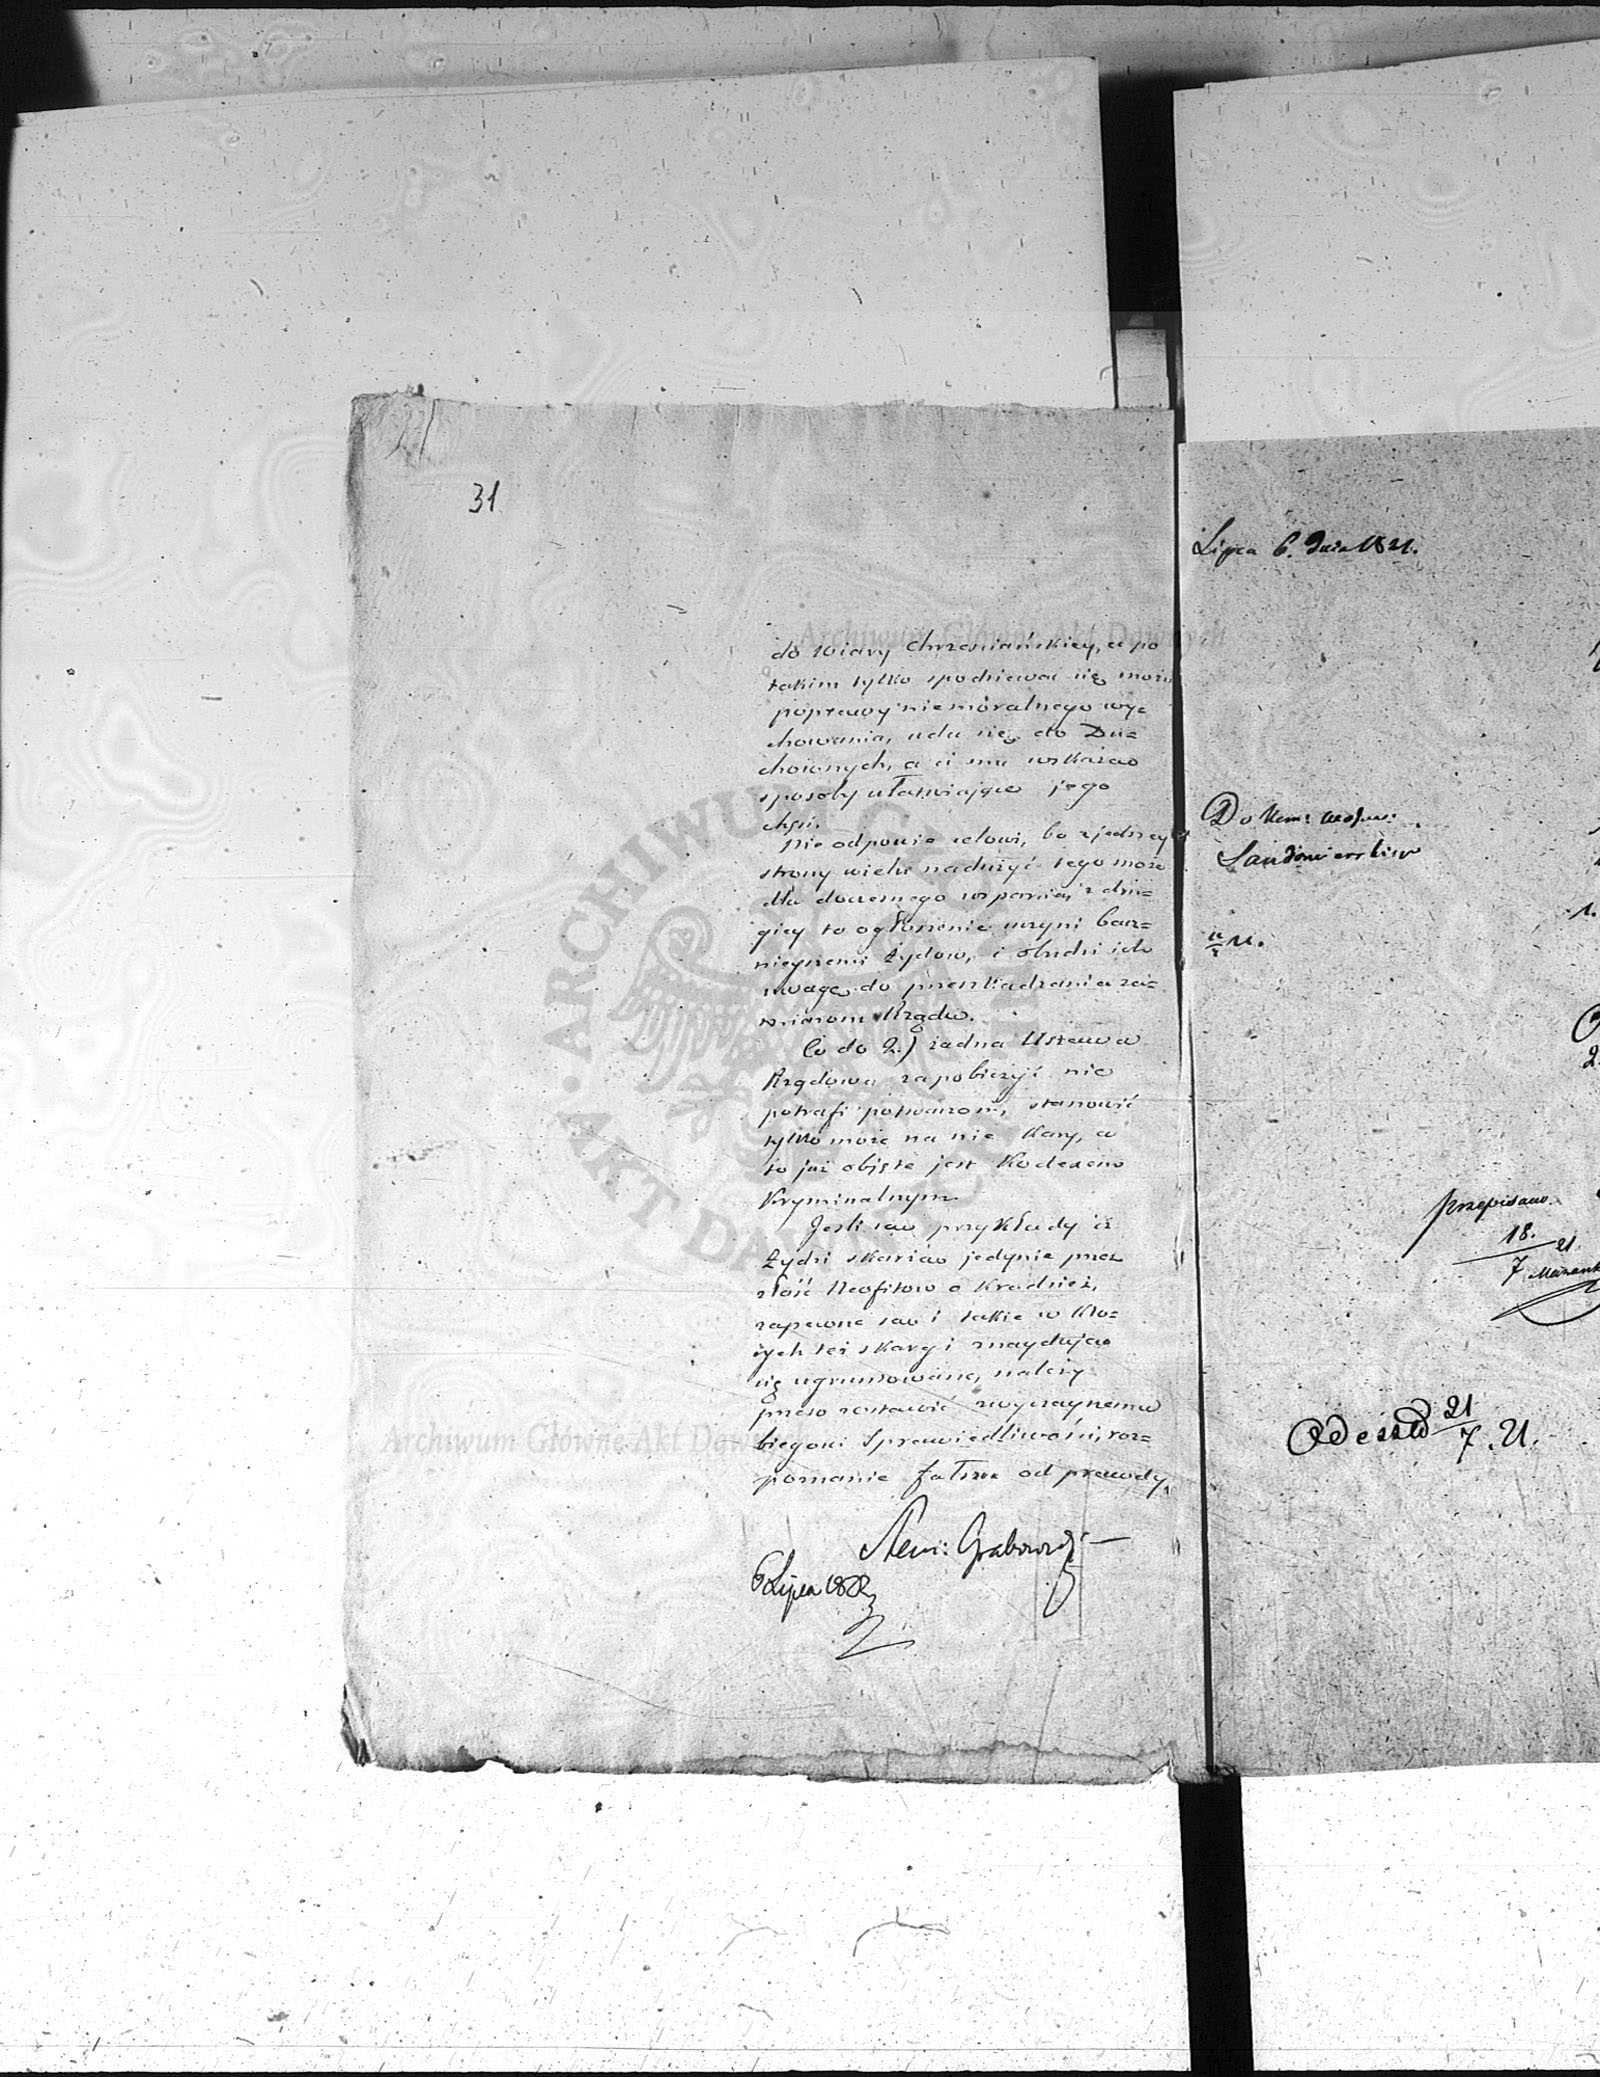 31
do Wiary Chrześciańskiey, a po
takim tylko spodziewać się można
poprawy niemoralnego wy=
chowania, uda się do Du=
chownych, a ci mu wskażą
sposoby ułatwiające jego
chęci.
Nie odpowie celowi, bo z jedney
strony wiele nadużyć tego może
dla doczesnego wsparcia, z dru=
giey to ogłoszenie uczyni bacz=
nieyszemi Żydów, i obudzi ich
uwagę do przeszkadzania za=
miarom Rządu.
Co do 2.) żadna Ustawa
Rządowa zapobieżyć nie
potrafi potwarzom, stanowić
tylko może na nie kary, a
to już objęte jest Kodexem
Kryminalnym.
Jeśli są przykłady iż
Żydzi skarżą jedynie przez
złość Neofitow o kradzież,
zapewne są i takie w któ=
rych też skargi znayduią
się ugruntowane, należy
przeto zostawić zwyczaynemu
biegowi Sprawiedliwości, roz=
poznanie fałszu od prawdy.
Grabowski
6 Lipca 1822
Lipca 6. Dnia 1821.
Do Kom: Wojew:
Sandomierskiey
Przepisano
18.
7 21.
Odeszło 21/7. 21.
Archiwum Główne Akt Dawnych
ARCHIWUM GŁÓWNE AKT DAWNYCH
Archiwum Główne Akt Dawnych